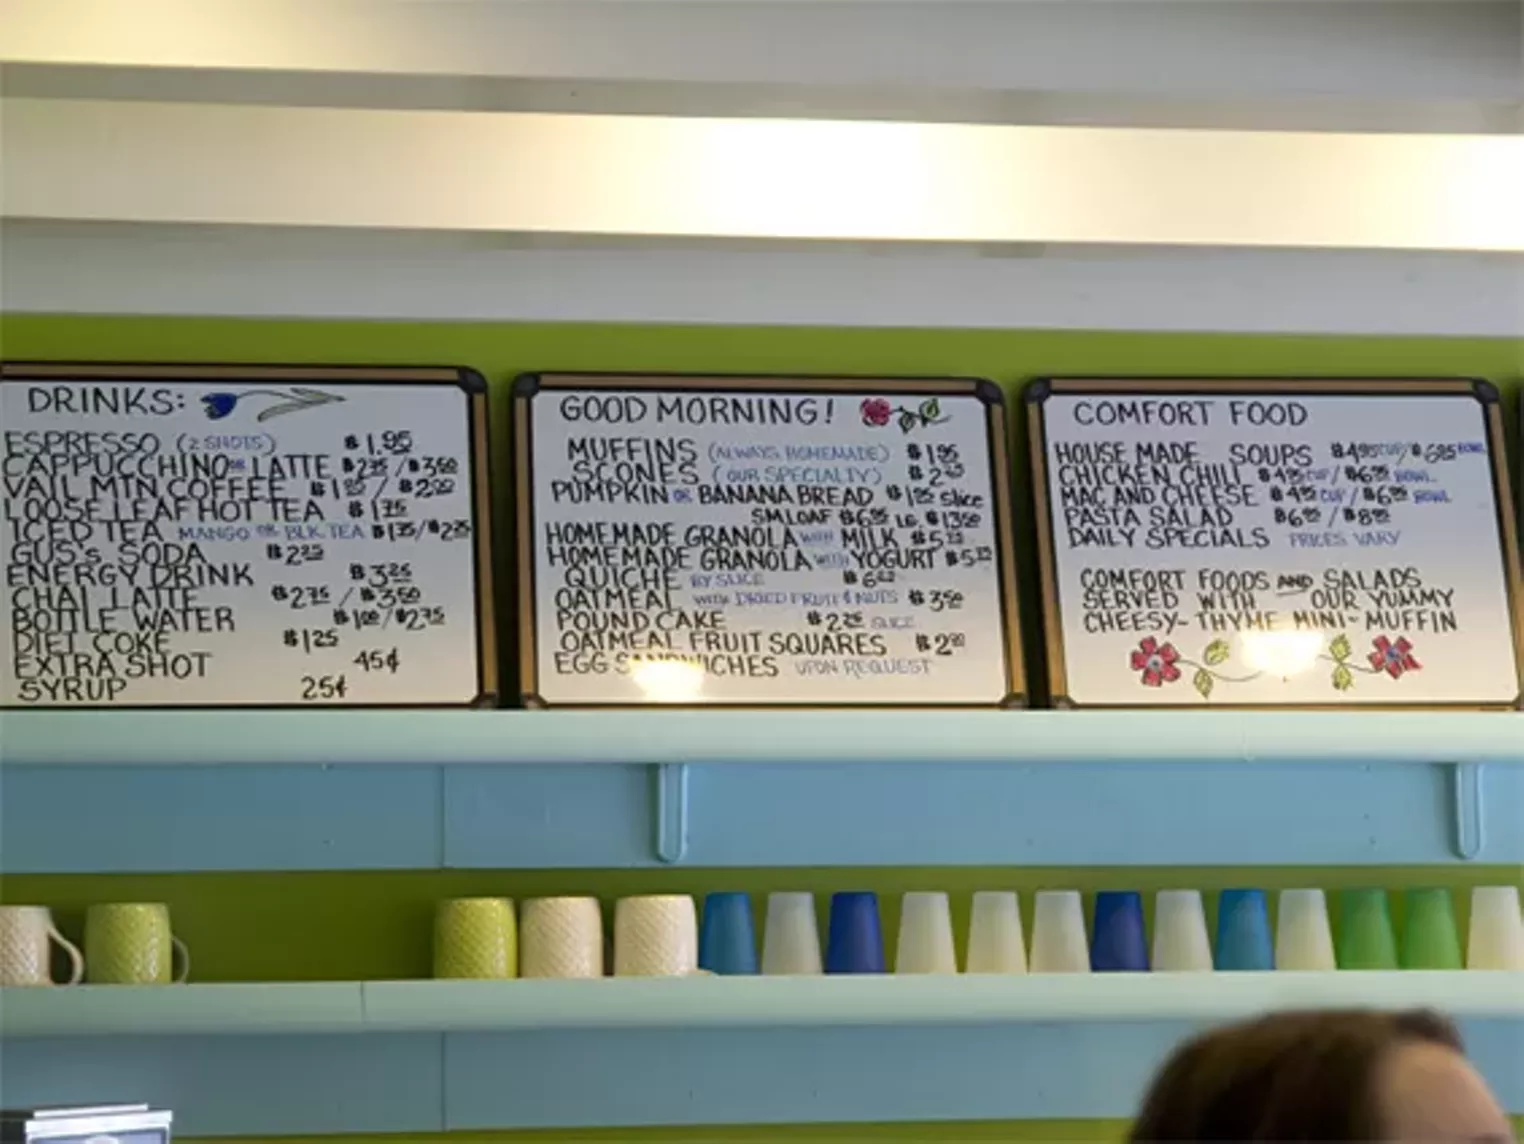 DRINKS:
ESPRESSO (2 SHOTS) $1.95
CAPPUCCHINO OR LATTE $2.75/$3.50
VAIL MTN COFFEE $1.85/$2.00
LOOSE LEAF HOT TEA $1.75
ICED TEA MANGO OR BLK TEA $1.75/$2.75
GUS's SODA $2.25
ENERGY DRINK $3.25
CHAI LATTE $2.75/$3.50
BOTTLE WATER $1.00/$2.75
DIET COKE $1.25
EXTRA SHOT 45¢
SYRUP 25¢
GOOD MORNING!
MUFFINS (ALWAYS HOMEMADE) $1.95
SCONES (OUR SPECIALTY) $2.25
PUMPKIN OR BANANA BREAD $1.85 slice
SM LOAF $6.95 LG. $13.50
HOMEMADE GRANOLA WITH MILK $5.25
HOMEMADE GRANOLA WITH YOGURT $5.25
QUICHE BY SLICE $6.25
OATMEAL WITH DRIED FRUIT & NUTS $3.50
POUND CAKE $2.25 SLICE
OATMEAL FRUIT SQUARES $2.00
EGG SANDWICHES UPON REQUEST
COMFORT FOOD
HOUSE MADE SOUPS $4.95 CUP/$6.95 BOWL
CHICKEN CHILI $4.95 CUP/$6.95 BOWL
MAC AND CHEESE $4.95 CUP/$6.95 BOWL
PASTA SALAD $6.95/$8.95
DAILY SPECIALS PRICES VARY
COMFORT FOODS AND SALADS
SERVED WITH OUR YUMMY
CHEESY-THYME MINI-MUFFIN